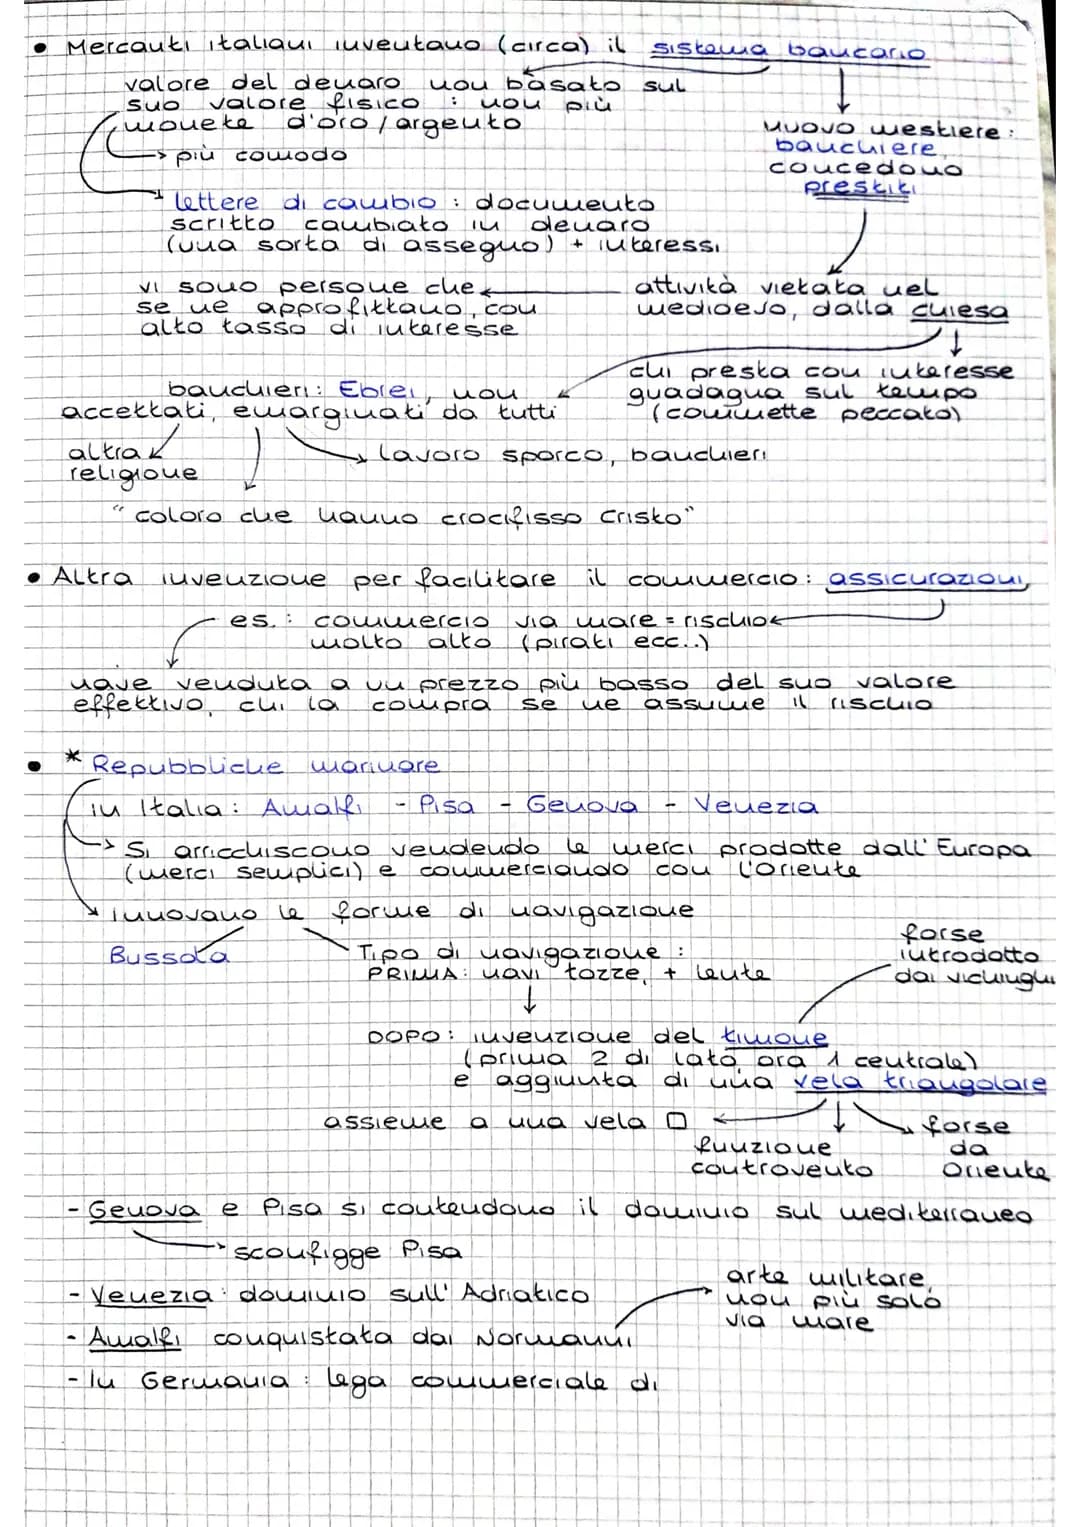 • Mercanti italiani inventano (circa) il sistema bancario
valore del denaro non basato sul
suo valore fisico : non più
monete d'oro/argento
→ più comodo
nuovo mestiere :
banchiere,
concedono
prestiti
lettere di cambio : documento
scritto cambiato in denaro
(una sorta di assegno) + interessi
attività vietata nel
medioevo, dalla chiesa
vi sono persone che
se ne approfittano, con
alto tasso di interesse
chi presta con interesse
guadagna sul tempo
(commette peccato)
banchieri: Ebrei, non
accettati, emarginati da tutti
altra
religione
lavoro sporco, banchieri
"coloro che hanno crocifisso Cristo"
• Altra invenzione per facilitare il commercio: assicurazioni,
es. : commercio via mare = rischio
molto alto (pirati ecc..)
nave venduta a un prezzo più basso del suo valore
effettivo, chi la compra se ne assume il rischio
• * Repubbliche marinare
in Italia: Amalfi - Pisa - Genova - Venezia
→ Si arricchiscono vendendo le merci prodotte dall'Europa
(merci semplici) e commerciando con l'Oriente
innovano le forme di navigazione
Bussola
Tipo di navigazione :
PRIMA: navi tozze, + lente
forse
introdotto
dai vichinghi
DOPO: invenzione del timone
(prima 2 di lato, ora 1 centrale)
e aggiunta di una vela triangolare
assieme a una vela □
funzione
controvento
forse
da
Oriente
- Genova e Pisa si contendono il dominio sul mediterraneo
→ sconfigge Pisa
- Venezia: dominio sull'Adriatico
- Amalfi conquistata dai Normanni
arte militare,
non più solo
via mare
- In Germania : lega commerciale di